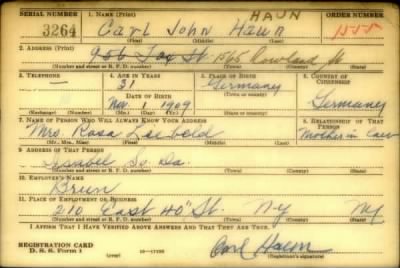 SERIAL NUMBER 1. NAME (Print) HAUN ORDER NUMBER
3264 Carl John Hawn 1555
(First) (Middle) (Last)
2. ADDRESS (Print)
956 Fox St 1565 Rowland St
(Number and street or R. F. D. number) (Town) (County) (State)
3. TELEPHONE 4. AGE IN YEARS 5. PLACE OF BIRTH 6. COUNTRY OF CITIZENSHIP
— 31 Germany
DATE OF BIRTH (Town or county)
Nov. 1 1909 Germany
(Exchange) (Number) (Mo.) (Day) (Yr.) (State or country)
7. NAME OF PERSON WHO WILL ALWAYS KNOW YOUR ADDRESS 8. RELATIONSHIP OF THAT PERSON
Mrs. Rosa Mother in Law
(Mr., Mrs., Miss) (First) (Middle) (Last)
9. ADDRESS OF THAT PERSON
Isabel So. Da.
(Number and street or R. F. D. number) (Town) (County) (State)
10. EMPLOYER'S NAME
Brun
11. PLACE OF EMPLOYMENT OR BUSINESS
210 East 40" St. NY NY
(Number and street or R. F. D. number) (Town) (County) (State)
I AFFIRM THAT I HAVE VERIFIED ABOVE ANSWERS AND THAT THEY ARE TRUE.
REGISTRATION CARD
D. S. S. Form 1 Carl Haun
(Registrant's signature)